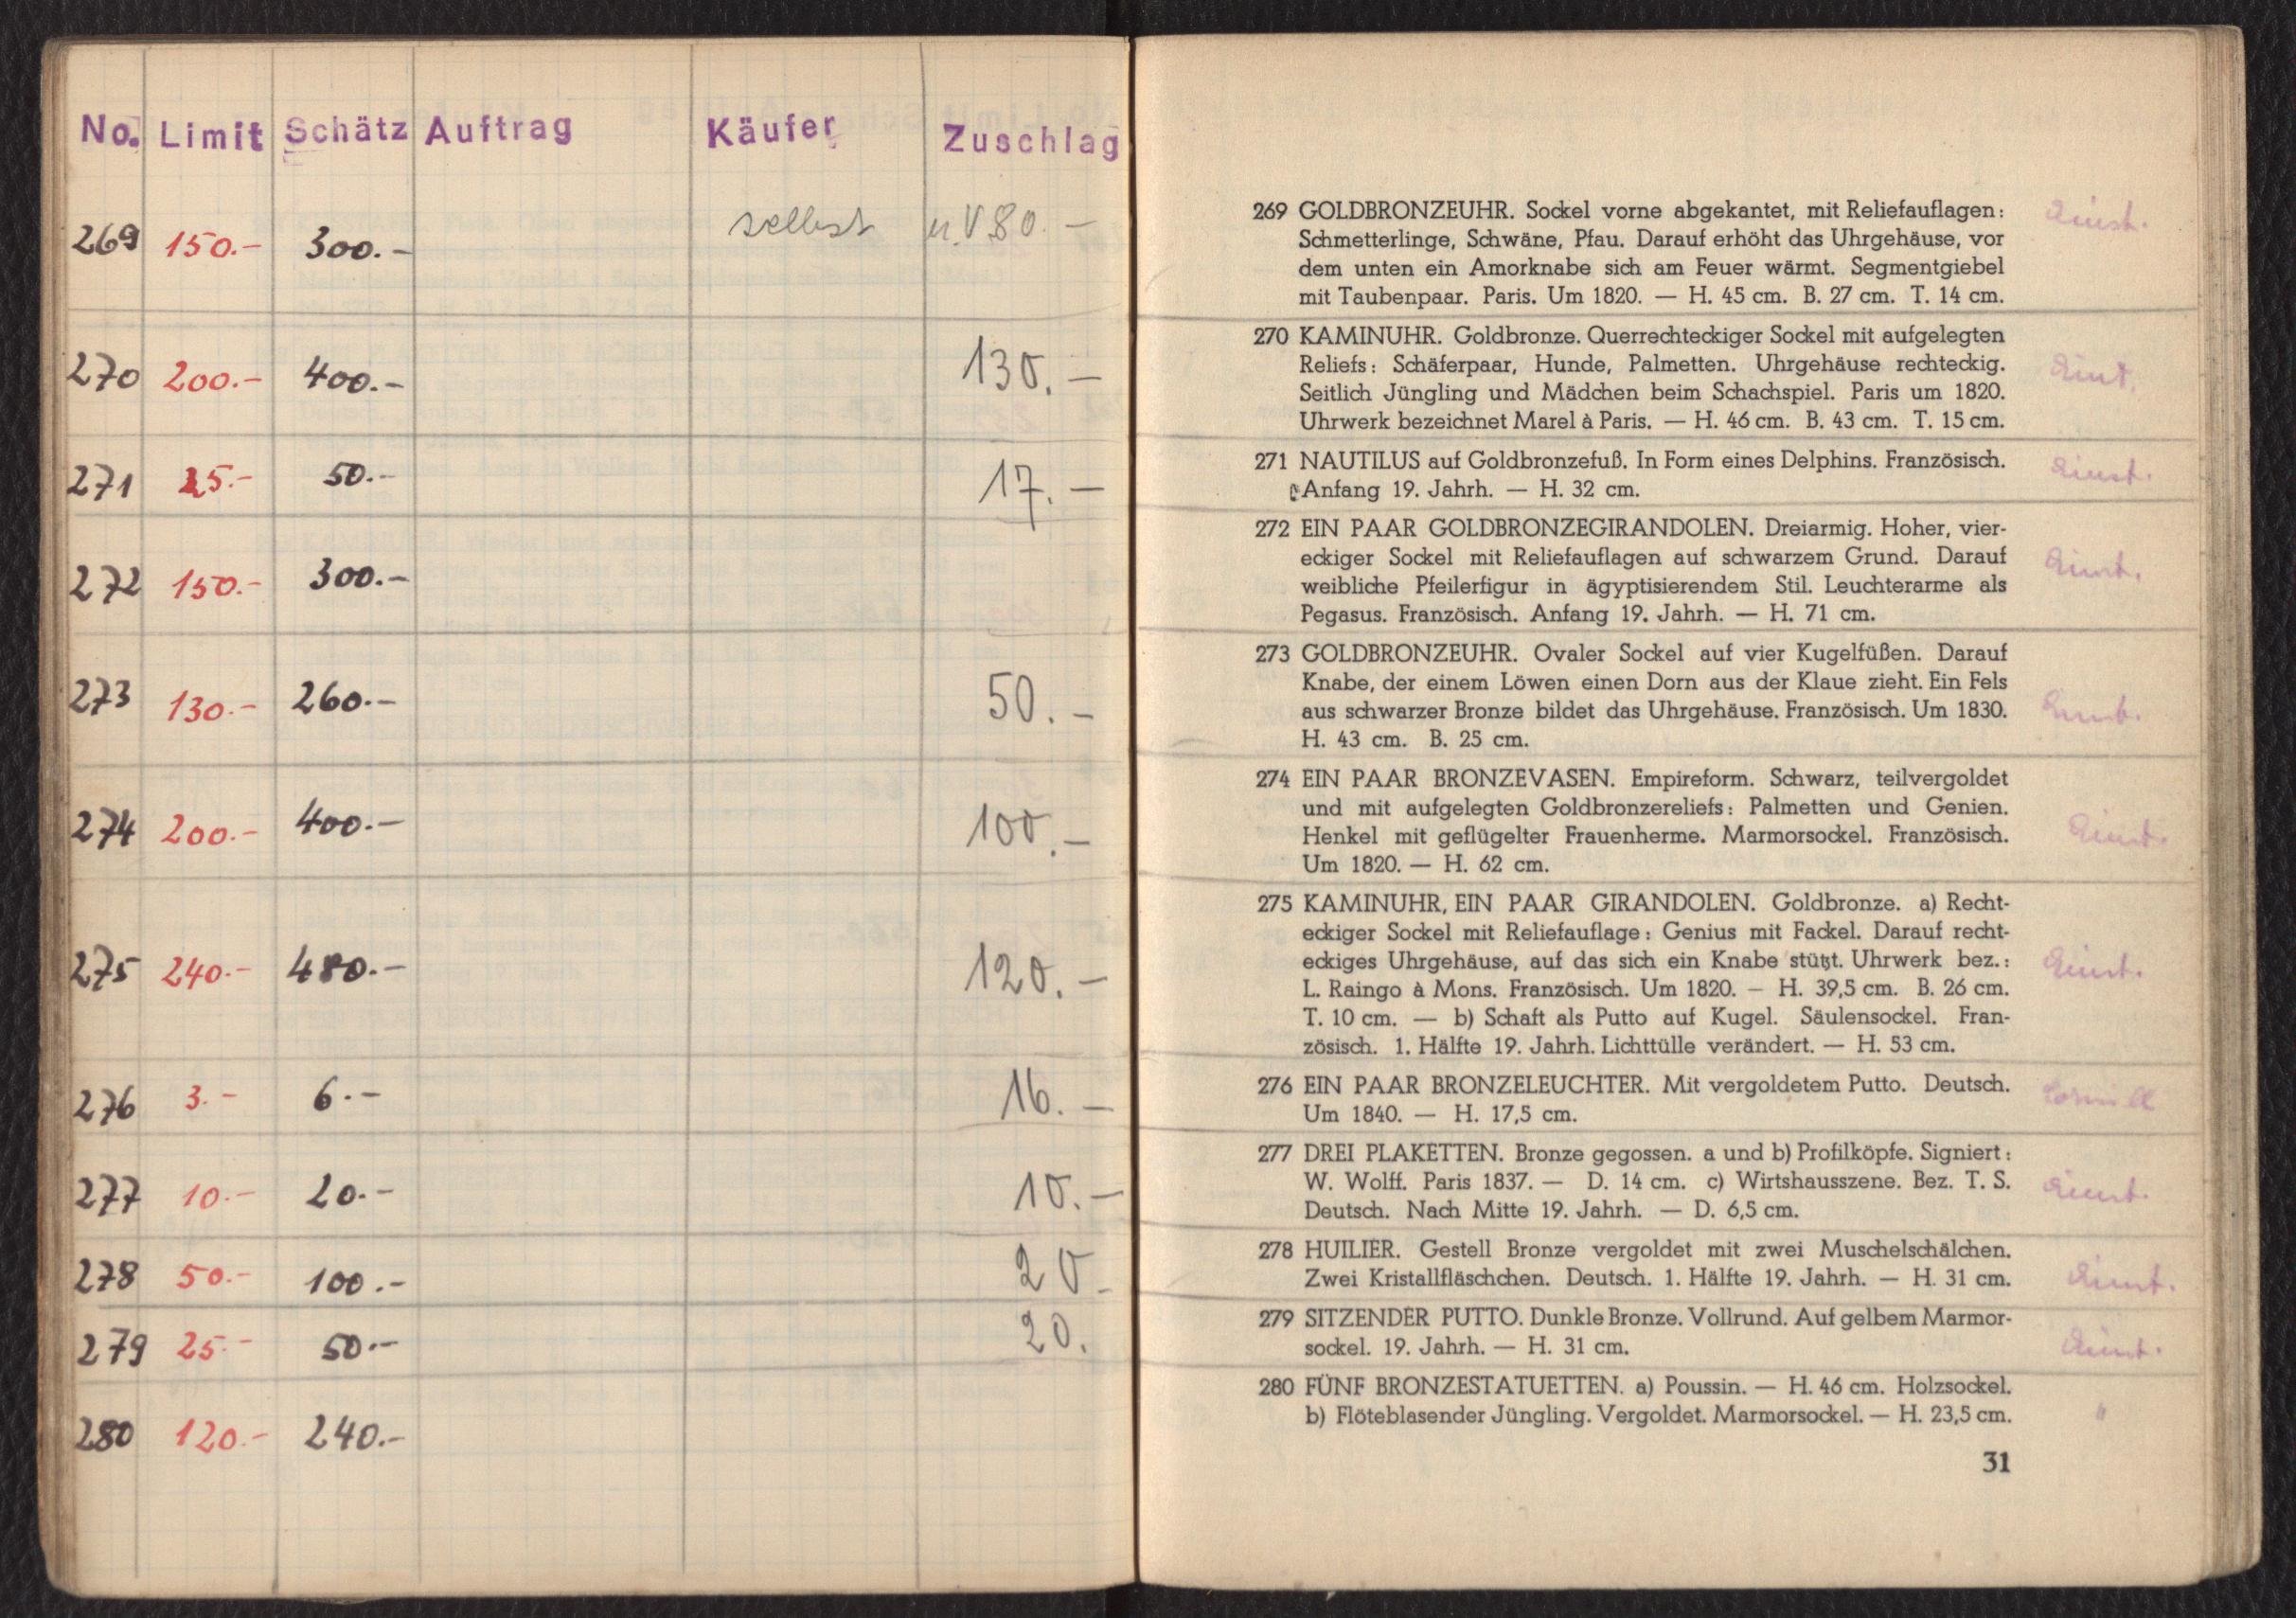 No. Limit Schätz Auftrag Käufer Zuschlag
269 150.- 300.- selbst u.V. 80.-
270 200.- 400.- 130.-
271 25.- 50.- 17.-
272 150.- 300.-
273 130.- 260.- 50.-
274 200.- 400.- 100.-
275 240.- 480.- 120.-
276 3.- 6.- 16.-
277 10.- 20.- 10.-
278 50.- 100.- 20.-
279 25.- 50.- 20.
280 120.- 240.-
269 GOLDBRONZEUHR. Sockel vorne abgekantet, mit Reliefauflagen:
Schmetterlinge, Schwäne, Pfau. Darauf erhöht das Uhrgehäuse, vor
dem unten ein Amorknabe sich am Feuer wärmt. Segmentgiebel
mit Taubenpaar. Paris. Um 1820. — H. 45 cm. B. 27 cm. T. 14 cm.
270 KAMINUHR. Goldbronze. Querrechteckiger Sockel mit aufgelegten
Reliefs: Schäferpaar, Hunde, Palmetten. Uhrgehäuse rechteckig.
Seitlich Jüngling und Mädchen beim Schachspiel. Paris um 1820.
Uhrwerk bezeichnet Marel à Paris. — H. 46 cm. B. 43 cm. T. 15 cm.
271 NAUTILUS auf Goldbronzefuß. In Form eines Delphins. Französisch.
Anfang 19. Jahrh. — H. 32 cm.
272 EIN PAAR GOLDBRONZEGIRANDOLEN. Dreiarmig. Hoher, vier-
eckiger Sockel mit Reliefauflagen auf schwarzem Grund. Darauf
weibliche Pfeilerfigur in ägyptisierendem Stil. Leuchterarme als
Pegasus. Französisch. Anfang 19. Jahrh. — H. 71 cm.
273 GOLDBRONZEUHR. Ovaler Sockel auf vier Kugelfüßen. Darauf
Knabe, der einem Löwen einen Dorn aus der Klaue zieht. Ein Fels
aus schwarzer Bronze bildet das Uhrgehäuse. Französisch. Um 1830.
H. 43 cm. B. 25 cm.
274 EIN PAAR BRONZEVASEN. Empireform. Schwarz, teilvergoldet
und mit aufgelegten Goldbronzereliefs: Palmetten und Genien.
Henkel mit geflügelter Frauenherme. Marmorsockel. Französisch.
Um 1820. — H. 62 cm.
275 KAMINUHR, EIN PAAR GIRANDOLEN. Goldbronze. a) Recht-
eckiger Sockel mit Reliefauflage: Genius mit Fackel. Darauf recht-
eckiges Uhrgehäuse, auf das sich ein Knabe stützt. Uhrwerk bez.:
L. Raingo à Mons. Französisch. Um 1820. — H. 39,5 cm. B. 26 cm.
T. 10 cm. — b) Schaft als Putto auf Kugel. Säulensockel. Fran-
zösisch. 1. Hälfte 19. Jahrh. Lichttülle verändert. — H. 53 cm.
276 EIN PAAR BRONZELEUCHTER. Mit vergoldetem Putto. Deutsch.
Um 1840. — H. 17,5 cm.
277 DREI PLAKETTEN. Bronze gegossen. a und b) Profilköpfe. Signiert:
W. Wolff. Paris 1837. — D. 14 cm. c) Wirtshausszene. Bez. T. S.
Deutsch. Nach Mitte 19. Jahrh. — D. 6,5 cm.
278 HUILIER. Gestell Bronze vergoldet mit zwei Muschelschälchen.
Zwei Kristallfläschchen. Deutsch. 1. Hälfte 19. Jahrh. — H. 31 cm.
279 SITZENDER PUTTO. Dunkle Bronze. Vollrund. Auf gelbem Marmor-
sockel. 19. Jahrh. — H. 31 cm.
280 FÜNF BRONZESTATUETTEN. a) Poussin. — H. 46 cm. Holzsockel.
b) Flöteblasender Jüngling. Vergoldet. Marmorsockel. — H. 23,5 cm. "
31